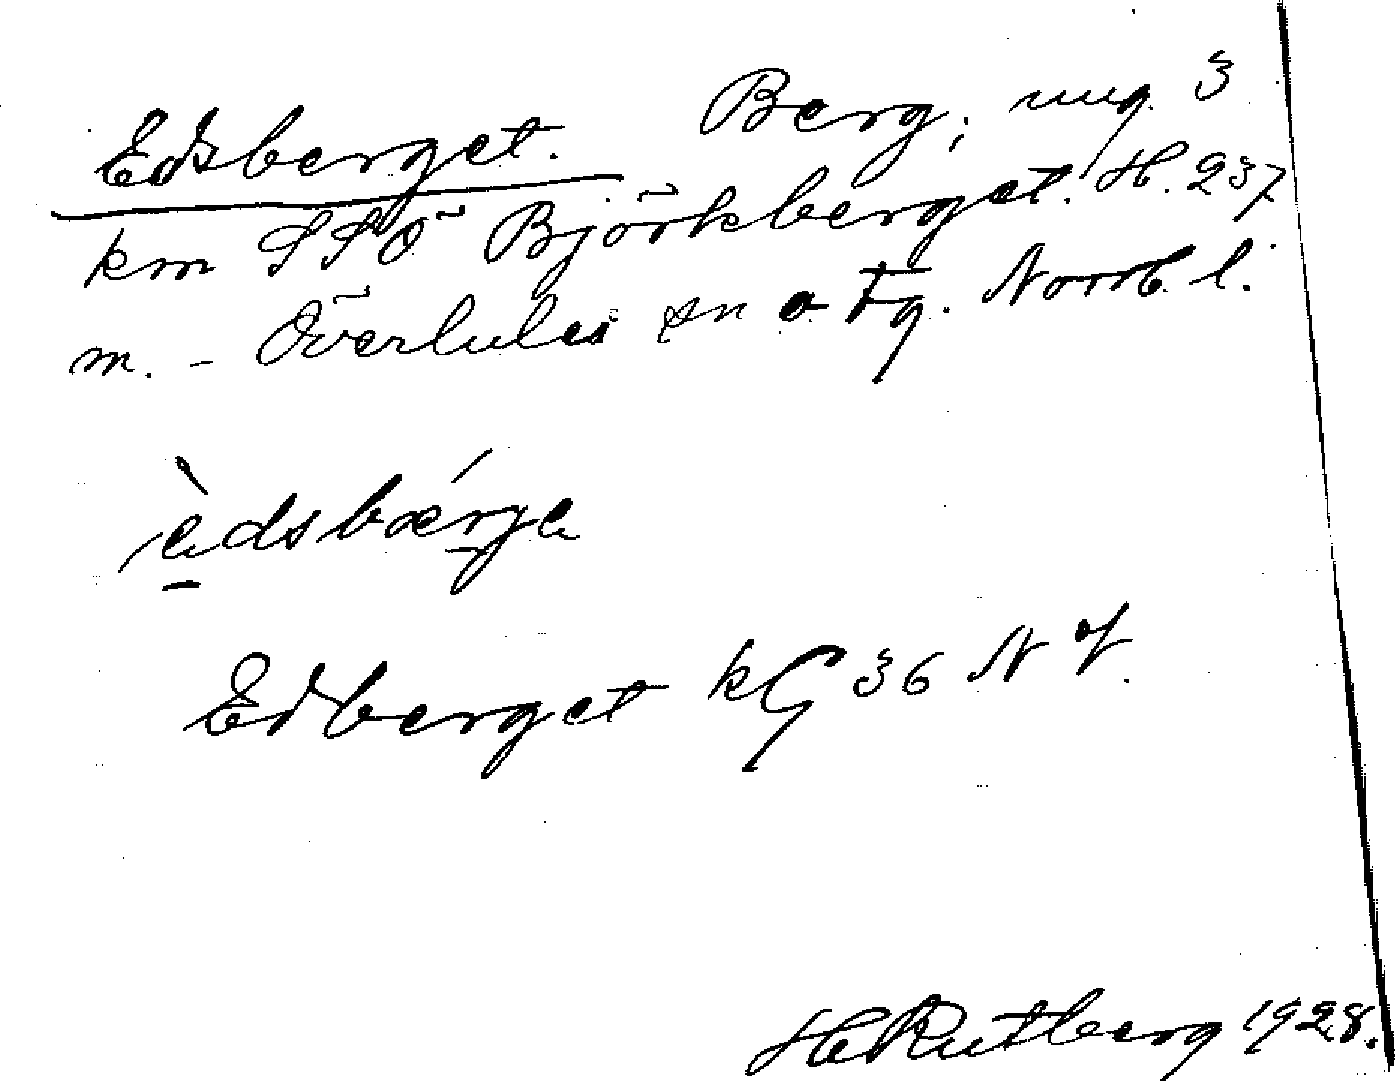 Edsberget. Berg; ung. 3
km SSÖ Björkberget. H. 237
m. - Överluleå sn o tg. Norrb. l.
èdsbærgɛ
Edberget kG 36 NV.
H Rutberg 1928.